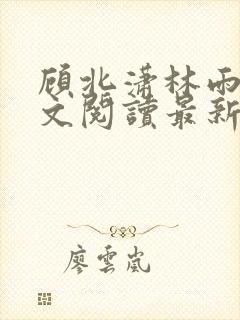 顾北潇林雨
文閱讀最新
廖雲嵐